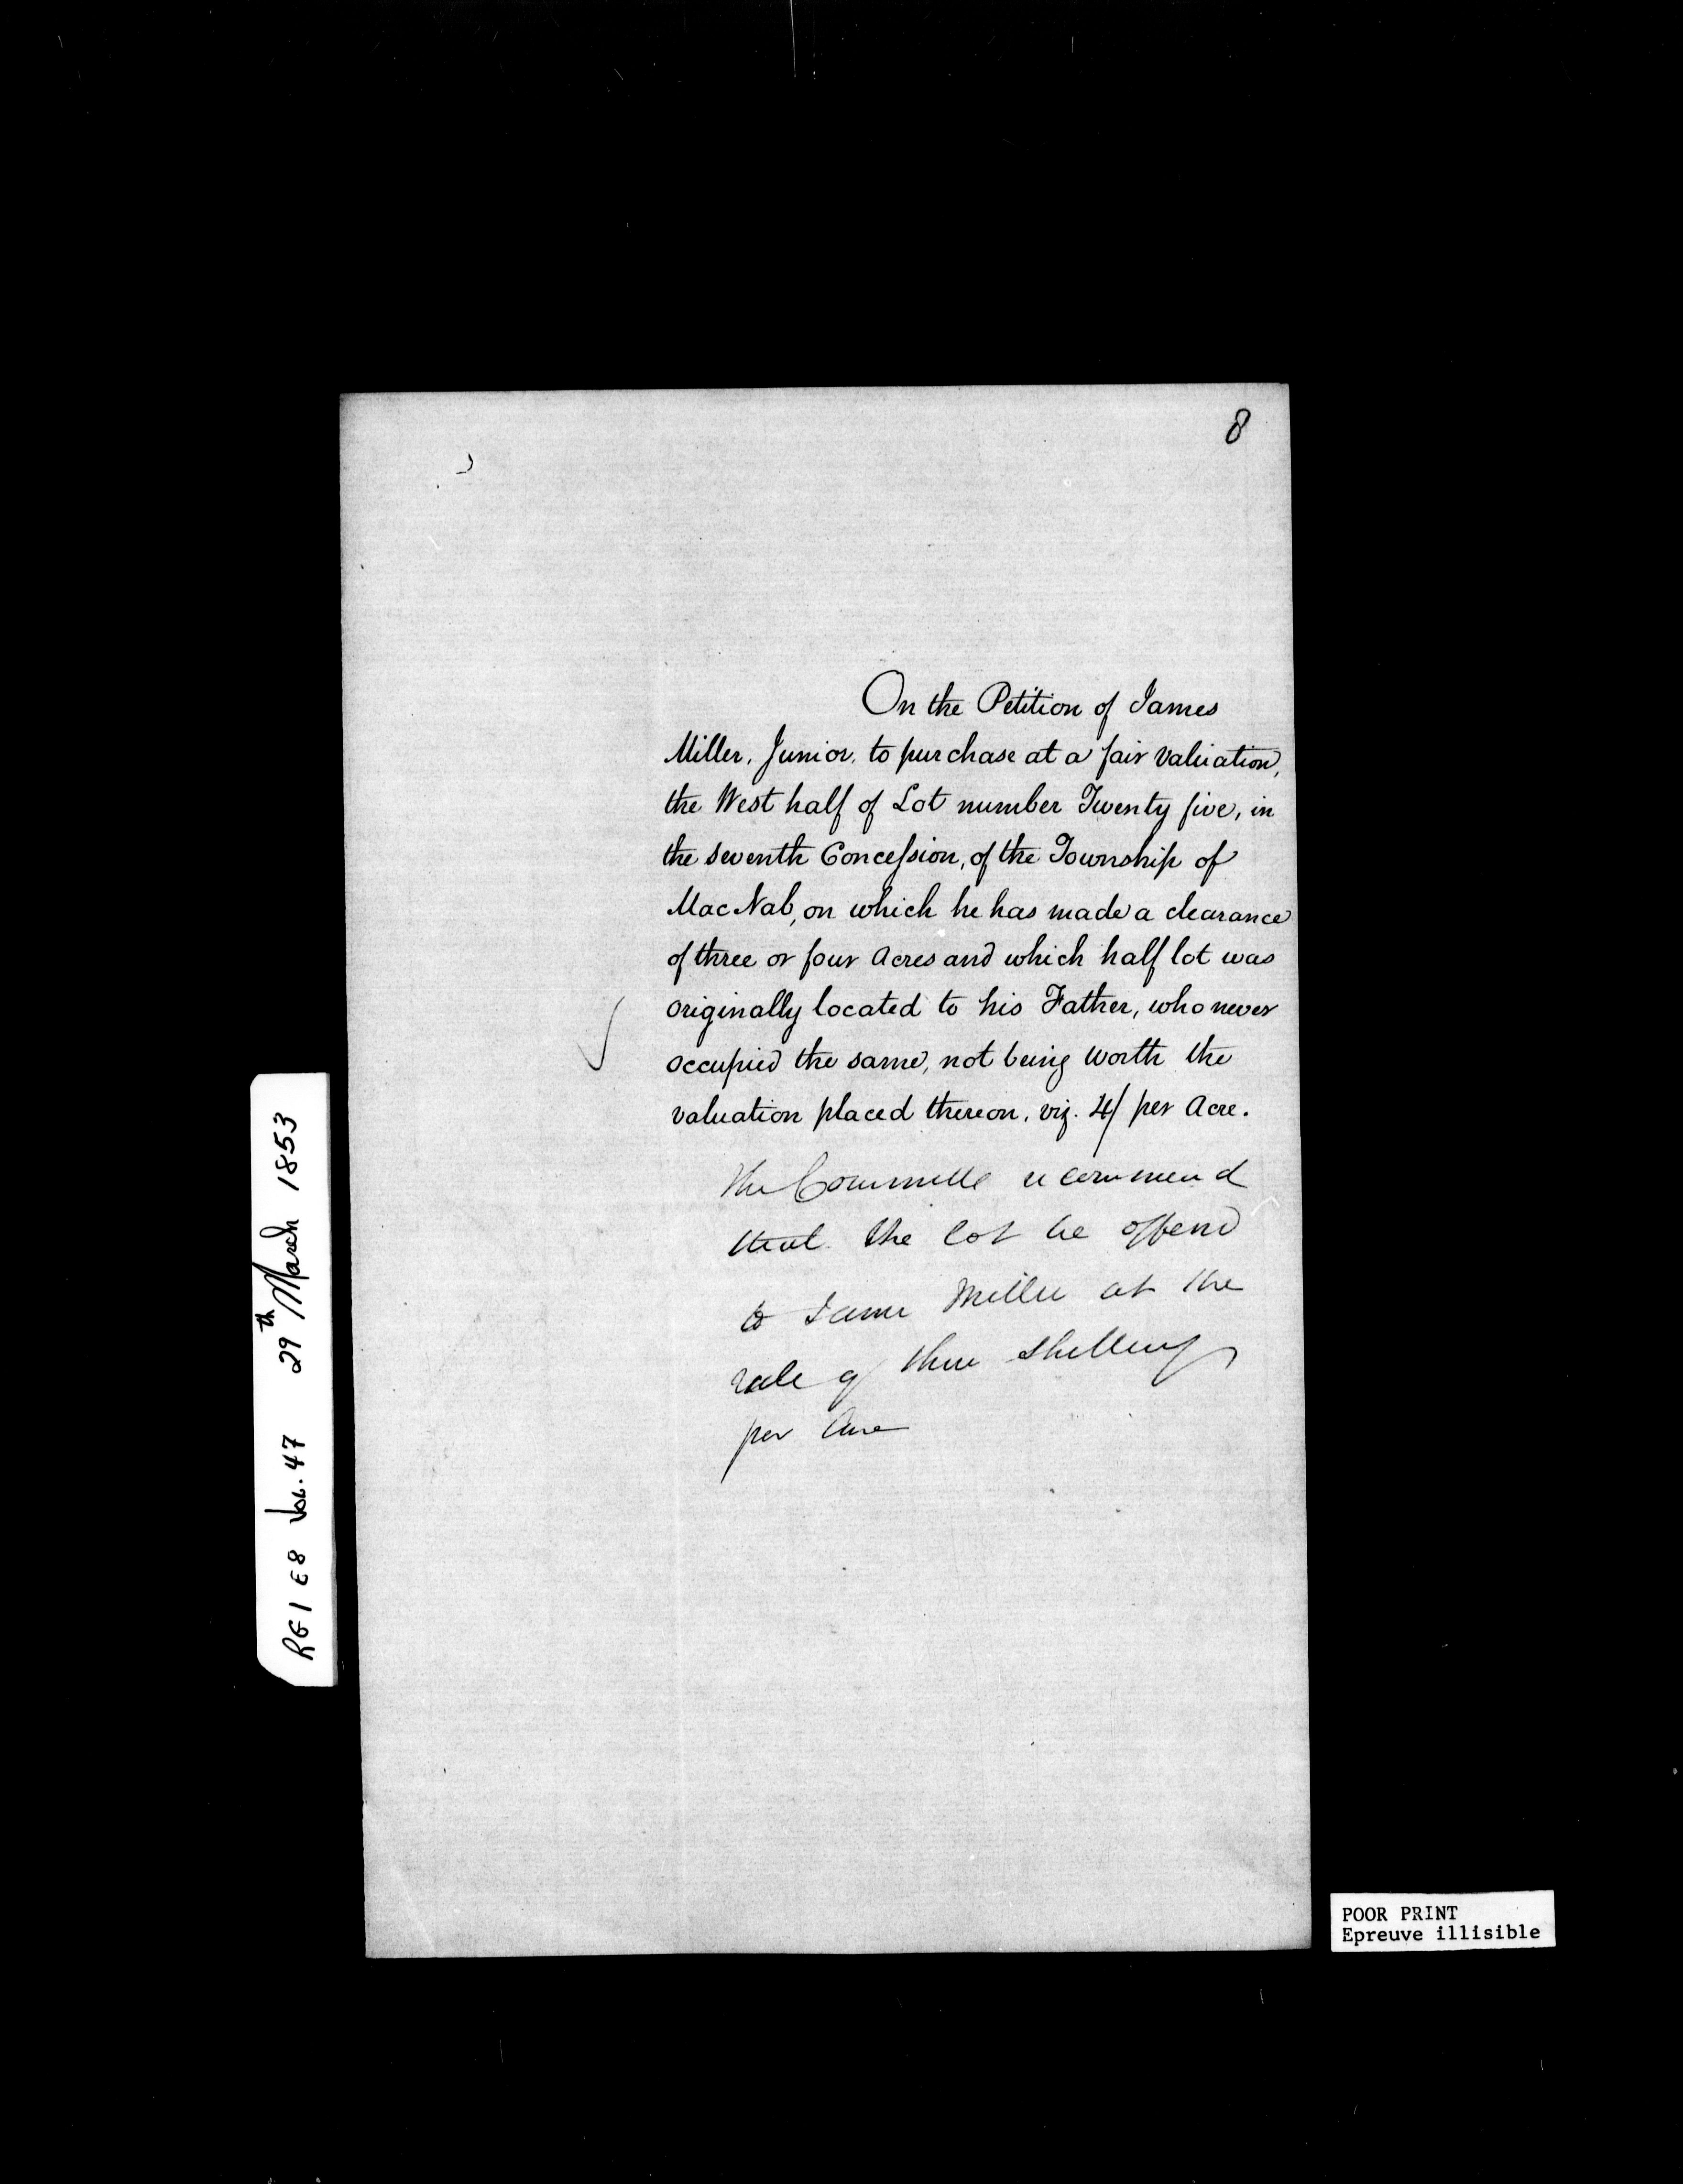 8
On the Petition of James
Miller, Junior, to purchase at a fair valuation,
the West half of Lot number Twenty five, in
the seventh Concession, of the Township of
MacNab, on which he has made a clearance
of three or four Acres and which half lot was
originally located to his Father, who never
occupied the same, not being worth the
valuation placed thereon, viz. 4/ per Acre.
The Committee recommend
that the lot be offered
to James Miller at the
rate of three shillings
per Acre
RG1 E8 Vol. 47 29th March 1853
POOR PRINT
Epreuve illisible